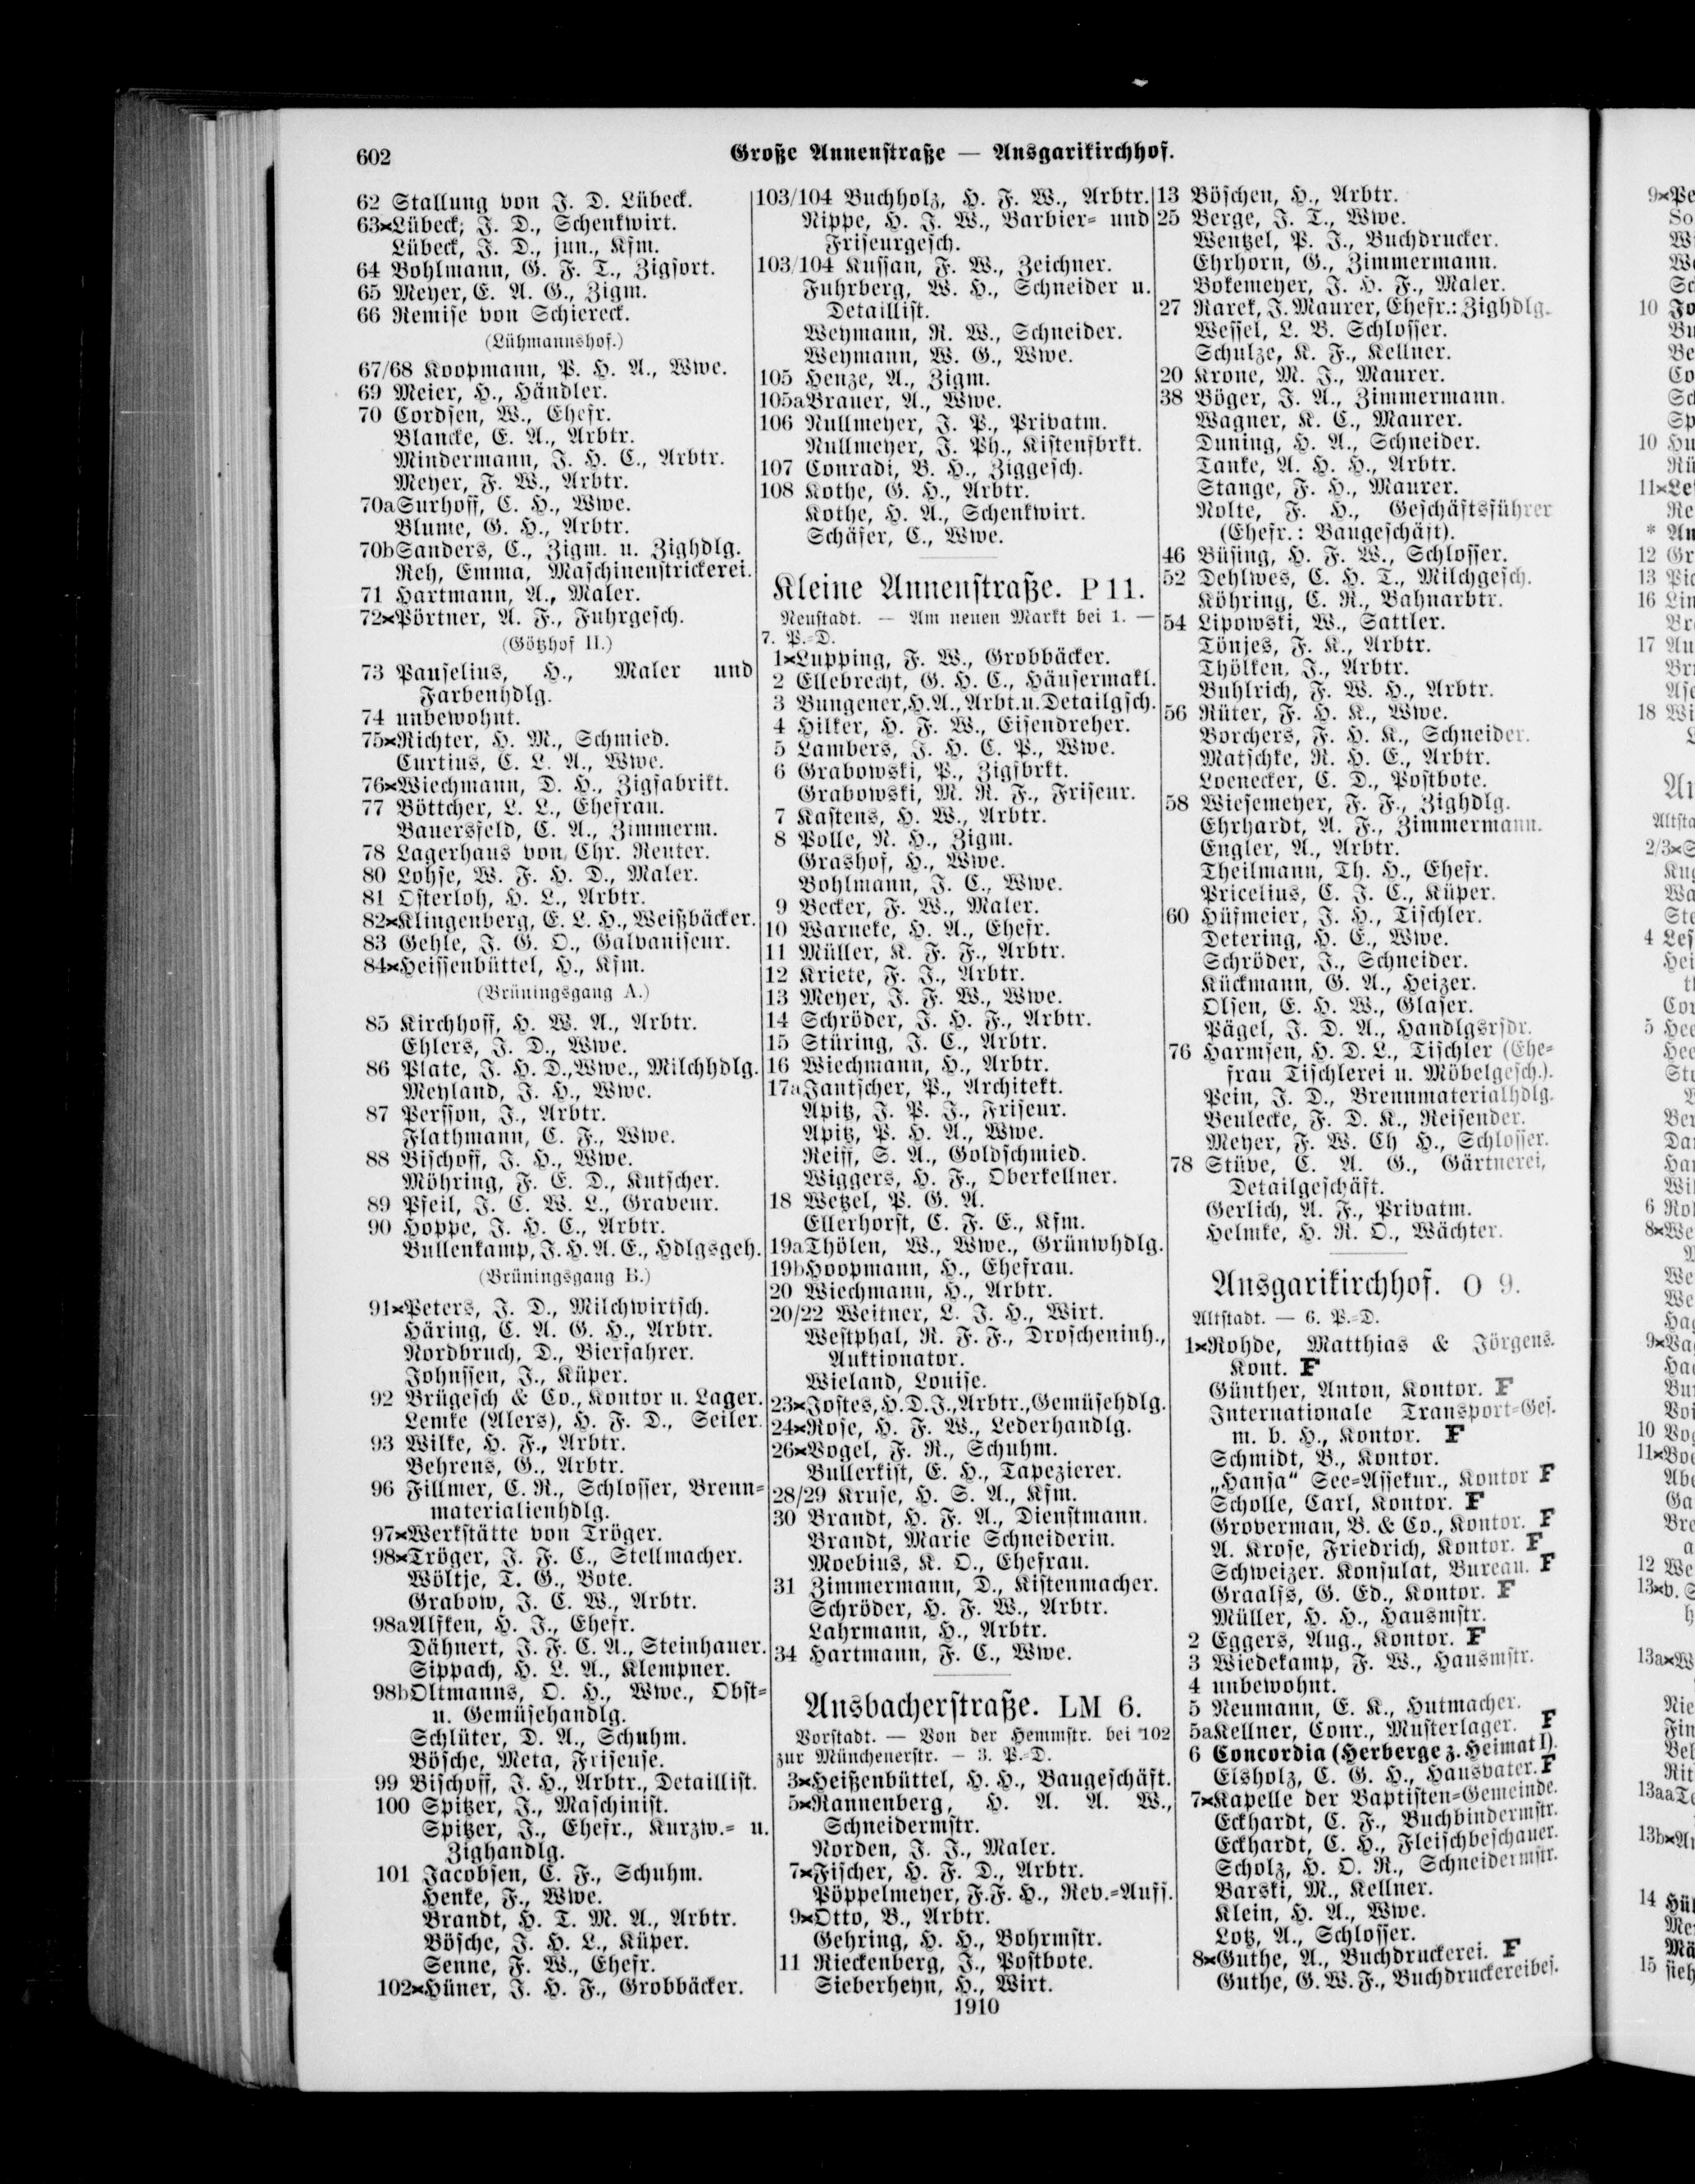 602
Große Annenstraße — Ansgarikirchhof.
62 Stallung von J. D. Lübeck.
63×Lübeck; J. D., Schenkwirt.
Lübeck, J. D., jun., Kfm.
64 Bohlmann, G. F. T., Zigsort.
65 Meyer, E. A. G., Zigm.
66 Remise von Schiereck.
(Lühmannshof.)
67/68 Koopmann, P. H. A., Wwe.
69 Meier, H., Händler.
70 Cordsen, W., Ehefr.
Blancke, E. A., Arbtr.
Mindermann, J. H. C., Arbtr.
Meyer, F. W., Arbtr.
70aSurhoff, C. H., Wwe.
Blume, G. H., Arbtr.
70bSanders, C., Zigm. u. Zighdlg.
Reh, Emma, Maschinenstrickerei.
71 Hartmann, A., Maler.
72×Pörtner, A. F., Fuhrgesch.
(Götzhof II.)
73 Pauselius, H., Maler und
Farbenhdlg.
74 unbewohnt.
75×Richter, H. M., Schmied.
Curtius, C. L. A., Wwe.
76×Wiechmann, D. H., Zigfabrikt.
77 Böttcher, L. L., Ehefrau.
Bauersfeld, C. A., Zimmerm.
78 Lagerhaus von Chr. Reuter.
80 Lohse, W. F. H. D., Maler.
81 Osterloh, H. L., Arbtr.
82×Klingenberg, E. L. H., Weißbäcker.
83 Gehle, J. G. O., Galvaniseur.
84×Heissenbüttel, H., Kfm.
(Brüningsgang A.)
85 Kirchhoff, H. W. A., Arbtr.
Ehlers, J. D., Wwe.
86 Plate, J. H. D., Wwe., Milchhdlg.
Meyland, J. H., Wwe.
87 Persson, J., Arbtr.
Flathmann, C. F., Wwe.
88 Bischoff, J. H., Wwe.
Möhring, F. E. D., Kutscher.
89 Pfeil, J. C. W. L., Graveur.
90 Hoppe, J. H. C., Arbtr.
Bullenkamp, J. H. A. E., Hdlgsgeh.
(Brüningsgang B.)
91×Peters, J. D., Milchwirtsch.
Häring, C. A. G. H., Arbtr.
Nordbruch, D., Bierfahrer.
Johnssen, J., Küper.
92 Brügesch & Co., Kontor u. Lager.
Lemke (Alers), H. F. D., Seiler.
93 Wilke, H. F., Arbtr.
Behrens, G., Arbtr.
96 Fillmer, C. R., Schlosser, Brenn-
materialienhdlg.
97×Werkstätte von Tröger.
98×Tröger, J. F. C., Stellmacher.
Wöltje, T. G., Bote.
Grabow, J. C. W., Arbtr.
98aAlfken, H. J., Ehefr.
Dähnert, J. F. C. A., Steinhauer.
Sippach, H. L. A., Klempner.
98bOltmanns, O. H., Wwe., Obst-
u. Gemüsehandlg.
Schlüter, D. A., Schuhm.
Bösche, Meta, Friseuse.
99 Bischoff, J. H., Arbtr., Detaillist.
100 Spitzer, J., Maschinist.
Spitzer, J., Ehefr., Kurzw.- u.
Zighandlg.
101 Jacobsen, C. F., Schuhm.
Henke, F., Wwe.
Brandt, H. T. M. A., Arbtr.
Bösche, J. H. L., Küper.
Senne, F. W., Ehefr.
102×Hüner, J. H. F., Grobbäcker.
103/104 Buchholz, H. F. W., Arbtr.
Nippe, H. J. W., Barbier- und
Friseurgesch.
103/104 Kussan, F. W., Zeichner.
Fuhrberg, W. H., Schneider u.
Detaillist.
Weymann, R. W., Schneider.
Weymann, W. G., Wwe.
105 Henze, A., Zigm.
105aBrauer, A., Wwe.
106 Nullmeyer, J. P., Privatm.
Nullmeyer, J. Ph., Kistenfbrkt.
107 Conradi, B. H., Ziggesch.
108 Kothe, G. H., Arbtr.
Kothe, H. A., Schenkwirt.
Schäfer, C., Wwe.
Kleine Annenstraße. P 11.
Neustadt. — Am neuen Markt bei 1. —
7. P.-D.
1×Lupping, F. W., Grobbäcker.
2 Ellebrecht, G. H. C., Häusermakl.
3 Bungener, H. A., Arbt. u. Detailgsch.
4 Hilker, H. F. W., Eisendreher.
5 Lambers, J. H. C. P., Wwe.
6 Grabowski, P., Zigfbrkt.
Grabowski, M. R. F., Friseur.
7 Kastens, H. W., Arbtr.
8 Polle, N. H., Zigm.
Grashof, H., Wwe.
Bohlmann, J. C., Wwe.
9 Becker, F. W., Maler.
10 Warneke, H. A., Ehefr.
11 Müller, K. F. F., Arbtr.
12 Kriete, F. J., Arbtr.
13 Meyer, J. F. W., Wwe.
14 Schröder, J. H. F., Arbtr.
15 Stüring, J. C., Arbtr.
16 Wiechmann, H., Arbtr.
17aJantscher, P., Architekt.
Apitz, J. P. J., Friseur.
Apitz, P. H. A., Wwe.
Reiff, S. A., Goldschmied.
Wiggers, H. F., Oberkellner.
18 Wetzel, P. G. A.
Ellerhorst, C. F. E., Kfm.
19aThölen, W., Wwe., Grünwhdlg.
19bHoopmann, H., Ehefrau.
20 Wiechmann, H., Arbtr.
20/22 Weitner, L. J. H., Wirt.
Westphal, R. F. F., Droscheninh.,
Auktionator.
Wieland, Louise.
23×Jostes, H. D. J., Arbtr., Gemüsehdlg.
24×Rose, H. F. W., Lederhandlg.
26×Vogel, F. R., Schuhm.
Bullerkist, E. H., Tapezierer.
28/29 Kruse, H. S. A., Kfm.
30 Brandt, H. F. A., Dienstmann.
Brandt, Marie Schneiderin.
Moebius, K. O., Ehefrau.
31 Zimmermann, D., Kistenmacher.
Schröder, H. F. W., Arbtr.
Lahrmann, H., Arbtr.
34 Hartmann, F. C., Wwe.
Ansbacherstraße. LM 6.
Vorstadt. — Von der Hemmstr. bei 102
zur Münchenerstr. — 3. P.-D.
3×Heißenbüttel, H. H., Baugeschäft.
5×Rannenberg, H. A. A. W.,
Schneidermstr.
Norden, J. J., Maler.
7×Fischer, H. F. D., Arbtr.
Pöppelmeyer, F. F. H., Rev.-Aufs.
9×Otto, B., Arbtr.
Gehring, H. H., Bohrmstr.
11 Rieckenberg, J., Postbote.
Sieberheyn, H., Wirt.
13 Böschen, H., Arbtr.
25 Berge, J. T., Wwe.
Wentzel, P. J., Buchdrucker.
Ehrhorn, G., Zimmermann.
Bokemeyer, J. H. F., Maler.
27 Rarek, J. Maurer, Ehefr.: Zighdlg.
Wessel, L. B. Schlosser.
Schulze, K. F., Kellner.
20 Krone, M. J., Maurer.
38 Böger, J. A., Zimmermann.
Wagner, K. C., Maurer.
Duning, H. A., Schneider.
Tanke, A. H. H., Arbtr.
Stange, F. H., Maurer.
Nolte, F. H., Geschäftsführer
(Ehefr.: Baugeschäft).
46 Büsing, H. F. W., Schlosser.
52 Dehlwes, C. H. T., Milchgesch.
Köhring, C. R., Bahnarbtr.
54 Lipowski, W., Sattler.
Tönjes, F. K., Arbtr.
Thölken, J., Arbtr.
Buhlrich, F. W. H., Arbtr.
56 Rüter, F. H. K., Wwe.
Borchers, F. H. K., Schneider.
Matschke, R. H. E., Arbtr.
Loenecker, C. D., Postbote.
58 Wiesemeyer, F. F., Zighdlg.
Ehrhardt, A. F., Zimmermann.
Engler, A., Arbtr.
Theilmann, Th. H., Ehefr.
Pricelius, C. J. C., Küper.
60 Hüfmeier, J. H., Tischler.
Detering, H. E., Wwe.
Schröder, J., Schneider.
Kückmann, G. A., Heizer.
Olsen, E. H. W., Glaser.
Pägel, J. D. A., Handlgsrsdr.
76 Harmsen, H. D. L., Tischler (Ehe-
frau Tischlerei u. Möbelgesch.).
Pein, J. D., Brennmaterialhdlg.
Beulecke, F. D. K., Reisender.
Meyer, F. W. Ch H., Schlosser.
78 Stüve, C. A. G., Gärtnerei,
Detailgeschäft.
Gerlich, A. F., Privatm.
Helmke, H. R. O., Wächter.
Ansgarikirchhof. O 9.
Altstadt. — 6. P.-D.
1×Rohde, Matthias & Jörgens.
Kont. F
Günther, Anton, Kontor. F
Internationale Transport-Ges.
m. b. H., Kontor. F
Schmidt, B., Kontor.
„Hansa“ See-Assekur., Kontor F
Scholle, Carl, Kontor. F
Groverman, B. & Co., Kontor. F
A. Krose, Friedrich, Kontor. F
Schweizer. Konsulat, Bureau. F
Graalfs, G. Ed., Kontor. F
Müller, H. H., Hausmstr.
2 Eggers, Aug., Kontor. F
3 Wiedekamp, F. W., Hausmstr.
4 unbewohnt.
5 Neumann, E. K., Hutmacher.
5aKellner, Conr., Musterlager. F
6 Concordia (Herberge z. Heimat I).
Elsholz, C. G. H., Hausvater. F
7×Kapelle der Baptisten-Gemeinde.
Eckhardt, C. F., Buchbindermstr.
Eckhardt, C. H., Fleischbeschauer.
Scholz, H. O. R., Schneidermstr.
Barski, M., Kellner.
Klein, H. A., Wwe.
Lotz, A., Schlosser.
8×Guthe, A., Buchdruckerei. F
Guthe, G. W. F., Buchdruckereibes.
1910